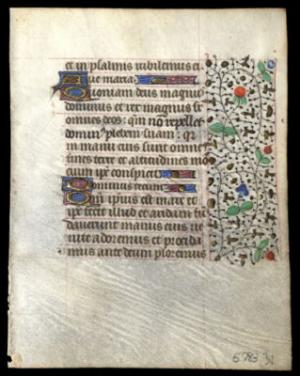 et in psalmis iubilemus ei
ue maria
Quoniam deus magnus
dominus et rex magnus su
omnes deos: qm non repellet
dominus plebem suam: qz
in manu eius sunt omnes
fines terre et altitudines mo
cium ipse conspicit
Dominus tecum
Qm ipsius est mare et
ipse fecit illud et aridam fu
dauerunt manus eius ue
nite adoremus et procida
mus ante deum ploremus